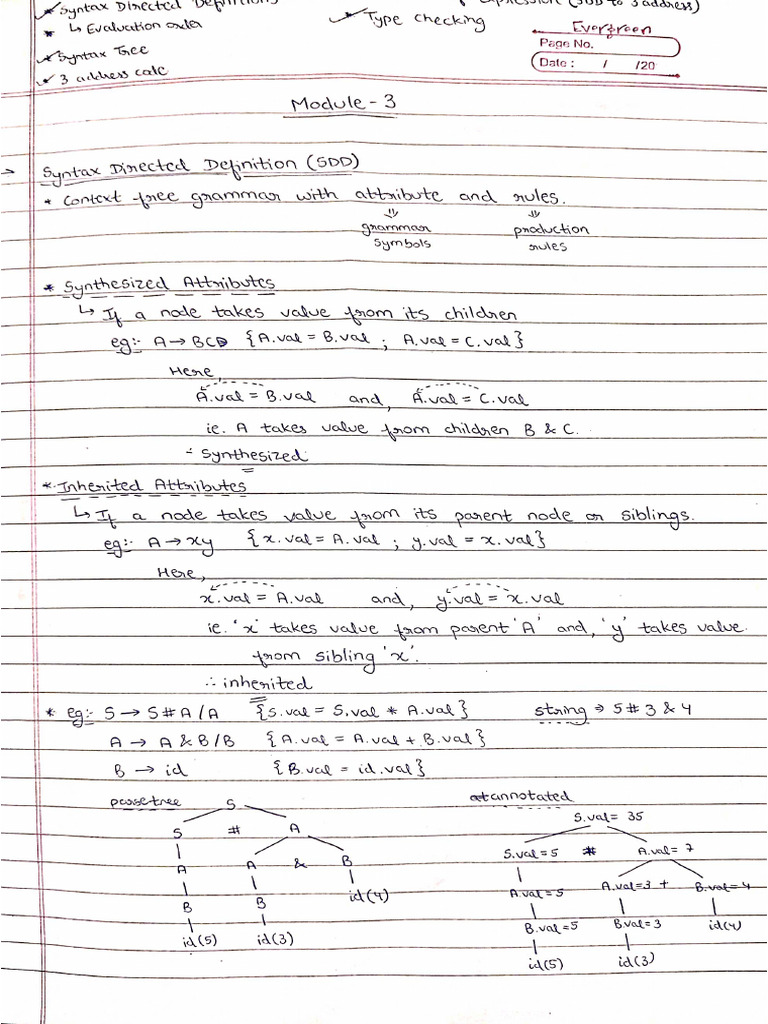 * Syntax Directed Definitions
Expression (SDD to 3 address)
* ↳ Evaluation order
✓ Type checking
* Syntax Tree
✓ 3 address calc
Evergreen
Page No.
Date : / /20
Module - 3
→ Syntax Directed Definition (SDD)
* Context free grammar with attribute and rules.
⇓ ⇓
grammar production
symbols rules
* Synthesized Attributes
↳ If a node takes value from its children
eg:- A → BCD {A.val = B.val ; A.val = C.val}
Here,
A.val = B.val and, A.val = C.val
ie. A takes value from children B & C.
∴ Synthesized
* Inherited Attributes
↳ If a node takes value from its parent node or siblings.
eg:- A → xy {x.val = A.val ; y.val = x.val}
Here,
x.val = A.val and, y.val = x.val
ie. 'x' takes value from parent 'A' and, 'y' takes value
from sibling 'x'.
∴ inherited
* eg:- S → S # A / A {S.val = S.val * A.val} string ⇒ 5 # 3 & 4
A → A & B / B {A.val = A.val + B.val}
B → id {B.val = id.val}
parsetree annotated
S S.val = 35
S # A S.val = 5 * A.val = 7
A A & B A.val = 5 A.val=3 + B.val=4
B B id(4) B.val=5 B.val=3 id(4)
id(5) id(3) id(5) id(3)